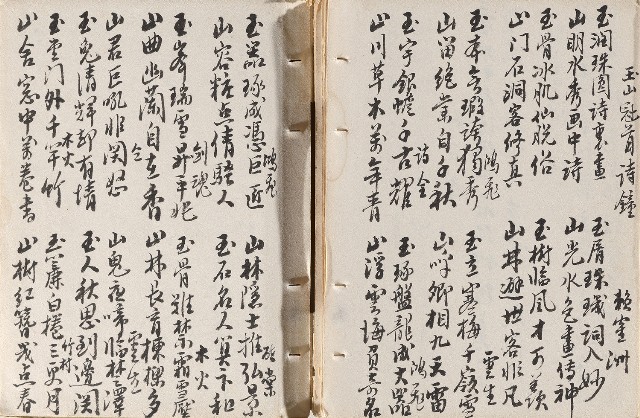 玉山冠首詩鐘
玉潤珠圓詩裏畫
山明水秀画中詩
玉骨冰肌仙脫俗
山门石洞客修真
鴻飛
玉本無瑕誇獨秀
山留絕業自千秋
玉宇銀蟾千古耀
山川草木萬年青
洲
玉屑珠璣詞入妙
山光水色畫傳神
玉樹臨風才可羨
山林避世客非凡
雲生
玉立寒梅千嶺雪
山呼卿相九天雷
鴻飛
玉琢盤龍成大器
山浮雲海負奇名
鴻飛
玉器琢成憑巨匠
山容粧点倩騷人
劍魂
玉峯瑞雪昇平兆
山曲幽蘭自在香
仝
山君巨吼非関怒
玉兔清輝卻有情
木火
玉雲门外千竿竹
山舍窓中萬卷書
棠
山林隱士推弘景
玉石名人算卞和
木火
玉骨難禁霜雪壓
山林長育棟樑多
雲生
山鬼夜啼臨澤
玉人秋思到邊関
竹村
玉簾白捲三更月
山樹紅簇幾点春